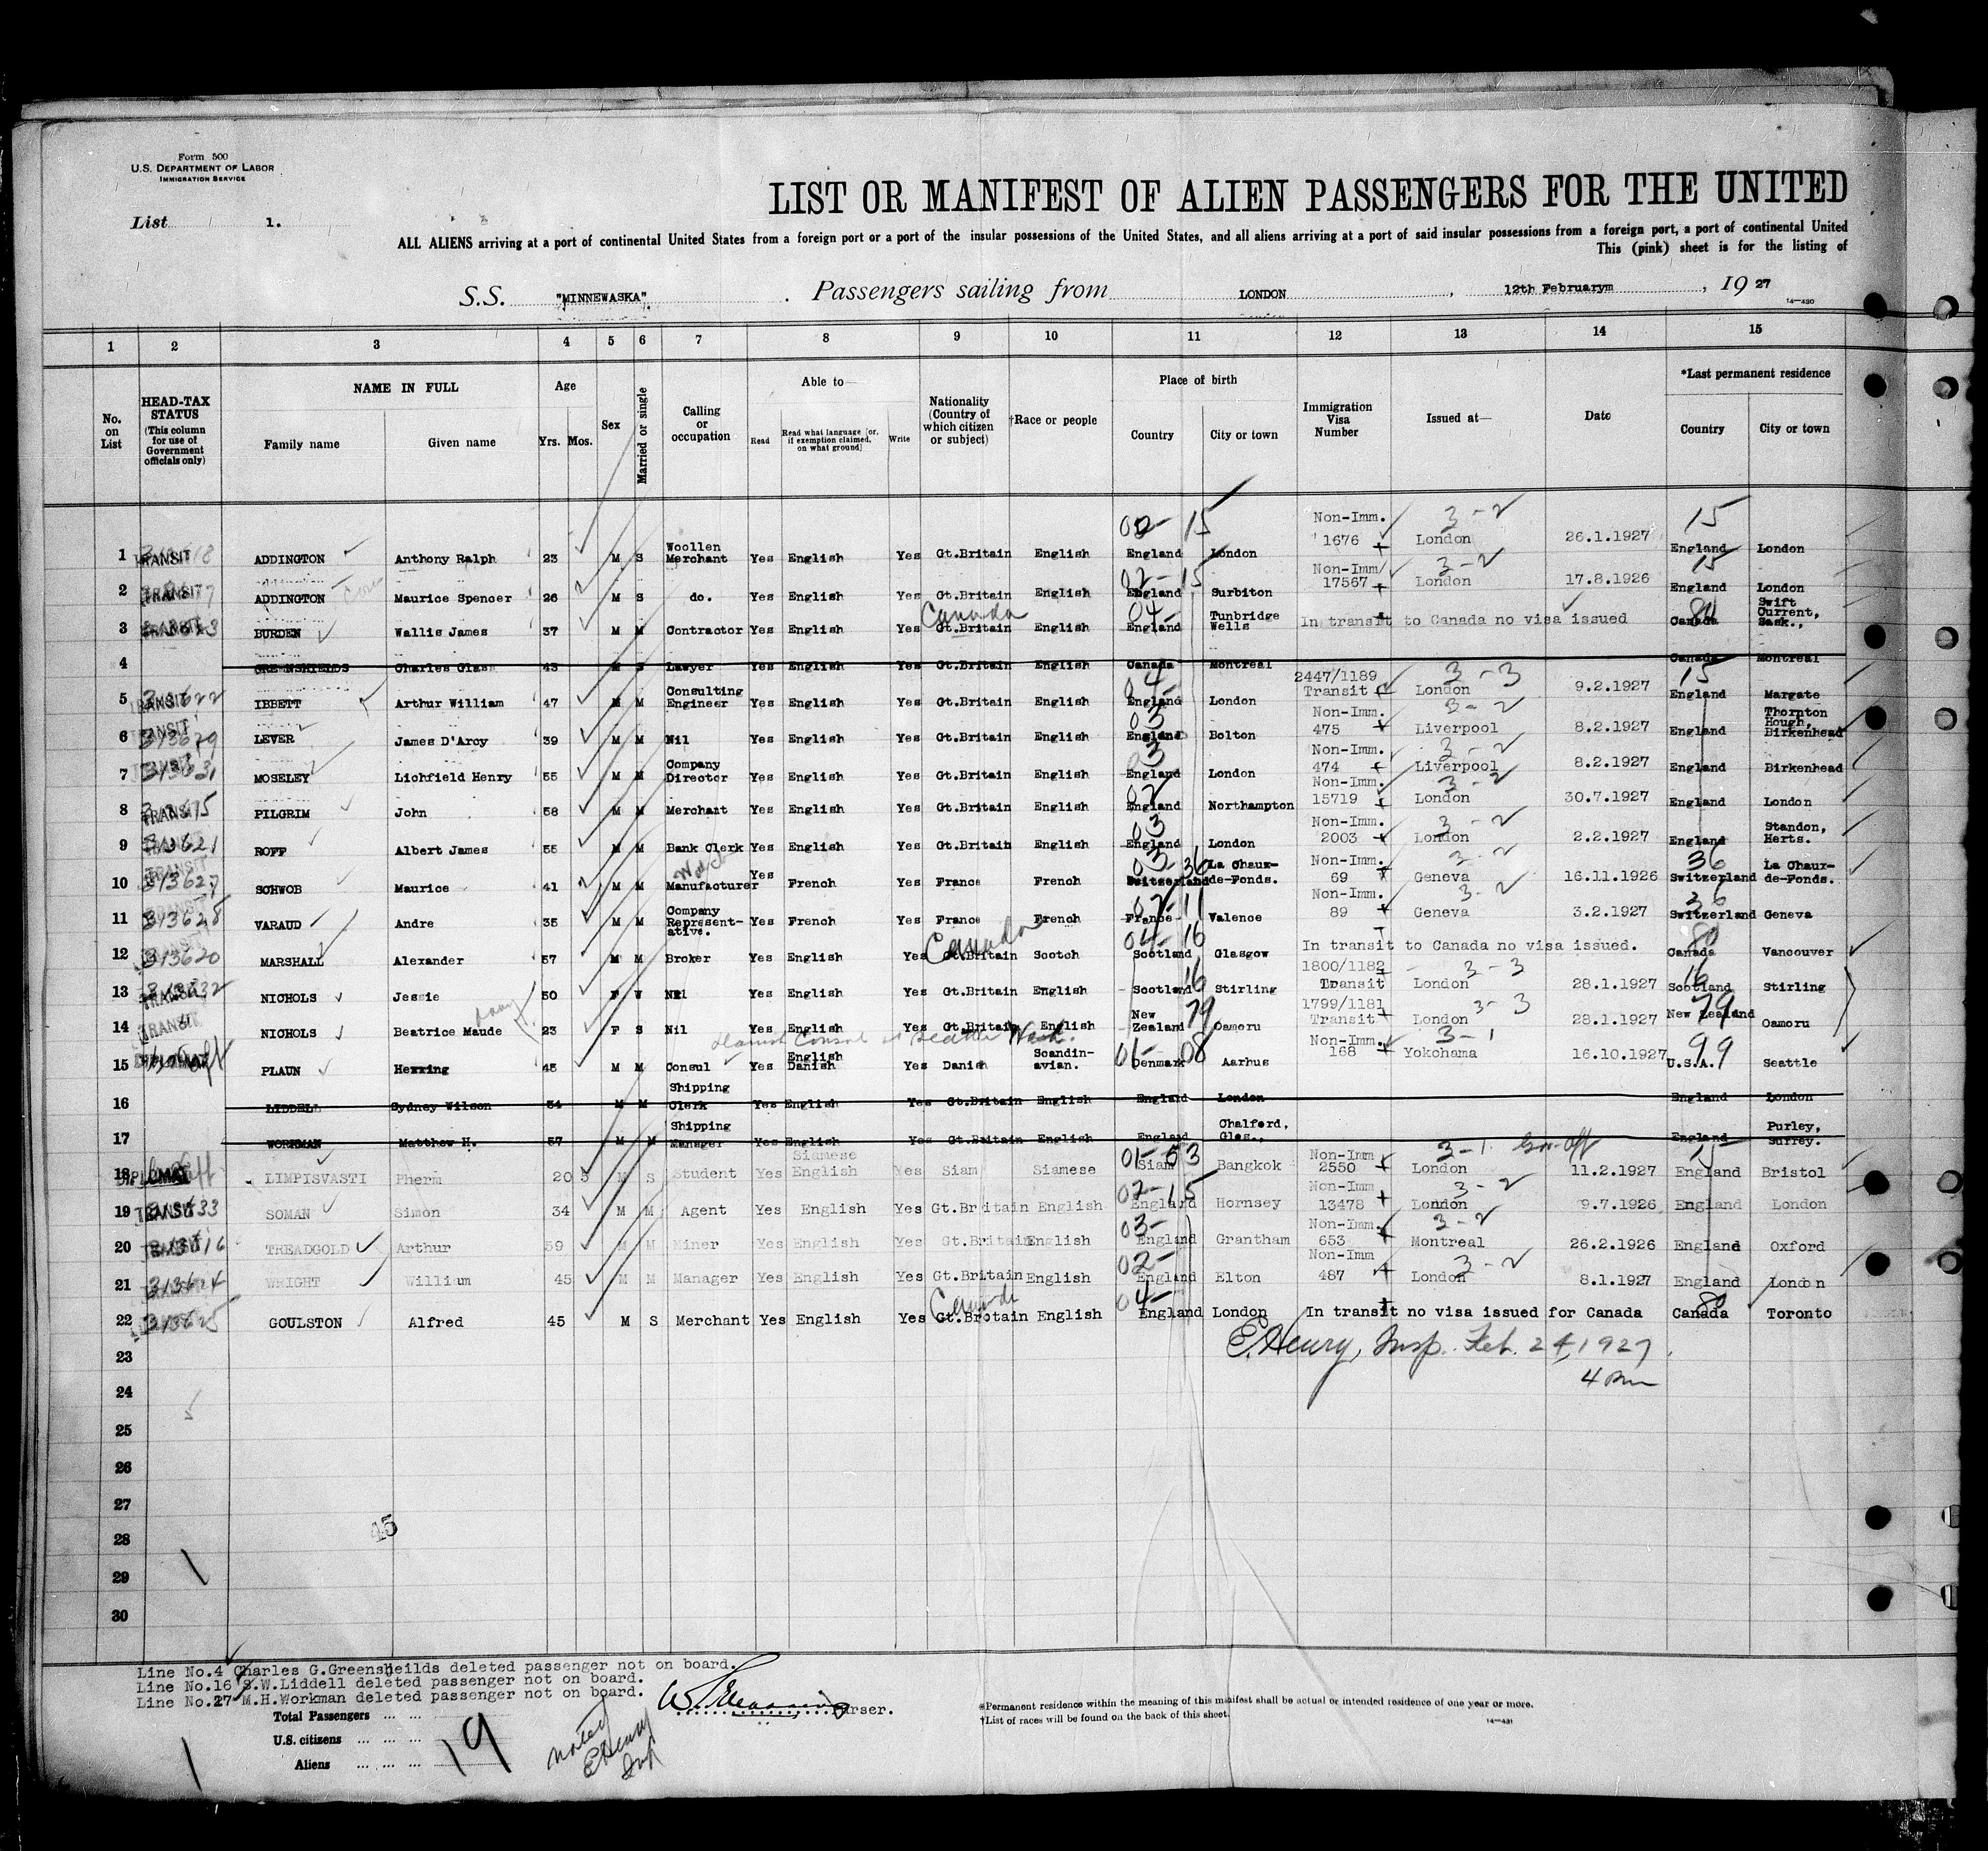 Form 500
U.S. DEPARTMENT OF LABOR
IMMIGRATION SERVICE
List 1.
LIST OR MANIFEST OF ALIEN PASSENGERS FOR THE UNITED
ALL ALIENS arriving at a port of continental United States from a foreign port or a port of the insular possessions of the United States, and all aliens arriving at a port of said insular possessions from a foreign port, a port of continental United
This (pink) sheet is for the listing of
S.S. "MINNEWASKA" . Passengers sailing from LONDON , 12th Februarym , 19 27
14—430
1 2 3 4 5 6 7 8 9 10 11 12 13 14 15
No. on List
HEAD-TAX STATUS (This column for use of Government officials only)
NAME IN FULL Family name Given name
Age Yrs. Mos.
Sex
Married or single
Calling or occupation
Able to— Read Read what language [or, if exemption claimed, on what ground] Write
Nationality (Country of which citizen or subject)
†Race or people
Place of birth Country City or town
Immigration Visa Number
Issued at—
Date
*Last permanent residence Country City or town
1 TRANSIT ADDINGTON Anthony Ralph 23 M S Woollen Merchant Yes English Yes Gt.Britain English 02-15 England London Non-Imm. 1676 3-2 London 26.1.1927 15 England London
2 TRANSIT ADDINGTON Maurice Spencer 26 M S do. Yes English Yes Gt.Britain English 02-15 England Surbiton Non-Imm/ 17567 3-2 London 17.8.1926 15 England London
3 TRANSIT BURDEN Wallis James 37 M M Contractor Yes English Yes Canada Gt.Britain English 04- England Tunbridge Wells In transit to Canada no visa issued 80 Canada Swift Current, Sask.,
4 GREENSHIELDS Charles Glass 43 M S Lawyer Yes English Yes Gt.Britain English Canada Montreal Canada Montreal
5 TRANSIT 313622 IBBETT Arthur William 47 M M Consulting Engineer Yes English Yes Gt.Britain English 04- England London 2447/1189 Transit 3-3 London 9.2.1927 15 England Margate
6 TRANSIT 313629 LEVER James D'Arcy 39 M M Nil Yes English Yes Gt.Britain English 03 England Bolton Non-Imm. 475 3-2 Liverpool 8.2.1927 England Thornton Hough, Birkenhead
7 313631 MOSELEY Lichfield Henry 55 M M Company Director Yes English Yes Gt.Britain English 03 England London Non-Imm. 474 3-2 Liverpool 8.2.1927 England Birkenhead
8 TRANSIT PILGRIM John 58 M M Merchant Yes English Yes Gt.Britain English 02 England Northampton Non-Imm. 15719 3-2 London 30.7.1927 England London
9 313621 ROFF Albert James 55 M M Bank Clerk Yes English Yes Gt.Britain English 03 England London Non-Imm. 2003 3-2 London 2.2.1927 England Standon, Herts.
10 TRANSIT 313627 SCHWOB Maurice 41 M M Watch Manufacturer Yes French Yes France French 03-36 Switzerland La Chaux-de-Fonds. Non-Imm. 69 3-2 Geneva 16.11.1926 36 Switzerland La Chaux-de-Fonds.
11 TRANSIT 313628 VARAUD Andre 35 M M Company Represent-ative. Yes French Yes France French 02-11 France Valence Non-Imm. 89 3-2 Geneva 3.2.1927 36 Switzerland Geneva
12 313620 MARSHALL Alexander 57 M M Broker Yes English Yes Canada Gt.Britain Scotch 04-16 Scotland Glasgow In transit to Canada no visa issued. 80 Canada Vancouver
13 TRANSIT 313632 NICHOLS Jessie 50 F W Nil Yes English Yes Gt.Britain English 16 Scotland Stirling 1800/1182 Transit 3-3 London 28.1.1927 16 Scotland Stirling
14 TRANSIT NICHOLS Beatrice Maude 23 F S Nil Yes English Yes Gt.Britain English 79 New Zealand Oamoru 1799/1181 Transit 3-3 London 28.1.1927 79 New Zealand Oamoru
Danish Consul at Seattle Wash.
15 DIPLOMAT PLAUN Herring 45 M M Consul Yes English Danish Yes Danish Scandin-avian. 01-08 Denmark Aarhus Non-Imm. 168 3-1 Yokohama 16.10.1927 99 U.S.A. Seattle
16 LIDDELL Sydney Wilson 34 M M Shipping Clerk Yes English Yes Gt.Britain English England London England London
17 WORKMAN Matthew H. 57 M M Shipping Manager Yes English Yes Gt.Britain English England Chalford, Glos., England Purley, Surrey.
18 DIPLOMAT LIMPISVASTI Pherm 20 5 M S Student Yes Siamese English Yes Siam Siamese 01-53 Siam Bangkok Non-Imm 2550 3-1 Gov-Off London 11.2.1927 15 England Bristol
19 TRANSIT 313633 SOMAN Simon 34 M M Agent Yes English Yes Gt.Britain English 02-15 England Hornsey Non-Imm 13478 3-2 London 9.7.1926 England London
20 TRANSIT 313616 TREADGOLD Arthur 59 M M Miner Yes English Yes Gt.Britain English 03- England Grantham Non-Imm. 653 3-2 Montreal 26.2.1926 England Oxford
21 313624 WRIGHT William 45 M M Manager Yes English Yes Gt.Britain English 02- England Elton Non-Imm 487 3-2 London 8.1.1927 England London
22 313625 GOULSTON Alfred 45 M S Merchant Yes English Yes Canada Gt.Britain English 04- England London In transit no visa issued for Canada 80 Canada Toronto
23 E. Henry, Insp. Feb. 24, 1927.
4 pm
24
25
26
27
28
45
29
30
Line No.4 Charles G.Greensheilds deleted passenger not on board.
Line No.16 S.W.Liddell deleted passenger not on board.
Line No.17 M.H.Workman deleted passenger not on board.
Purser.
Total Passengers ... ...
U.S. citizens ... ... ...
Aliens ... ... ... 19
noted E Henry Insp
*Permanent residence within the meaning of this manifest shall be actual or intended residence of one year or more.
†List of races will be found on the back of this sheet.
14—431